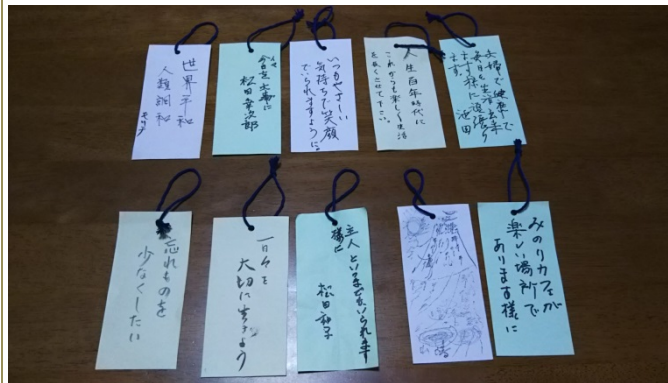 世界平和
人類調和
今を大事に
松田幸次郎
いつもやさしい
気持ちで笑顔
でいられますように。
人生百年時代に
これからも楽しく生活
をおくらせて下さい。
夫婦で健康で
毎日を生活出来
ます様に頑張り
ます。
池田
忘れものを
少なくしたい
一日々を
大切に生きよう
主人といつまでもいられます
様に
松田和子
みのりカフェが
楽しい場所で
あります様に